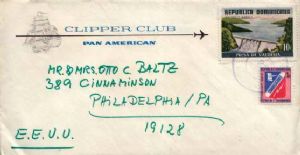 CLIPPER CLUB
PAN AMERICAN
REPUBLICA DOMINICANA
10¢
PRESA DE VALDESIA
MR. & MRS. OTTO C. BALTZ
389 CINNAMINSON
PHILADELPHIA/PA
19128
E.E.U.U.